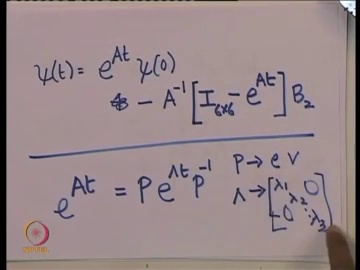 ψ(t) = e^{At} ψ(0)
- A^{-1} [I_{6x6} - e^{At}] B_2
e^{At} = P e^{λt} P^{-1}
P → e v
λ → [λ_1 0
λ_2
0 ⋱ λ_3]
NPTEL